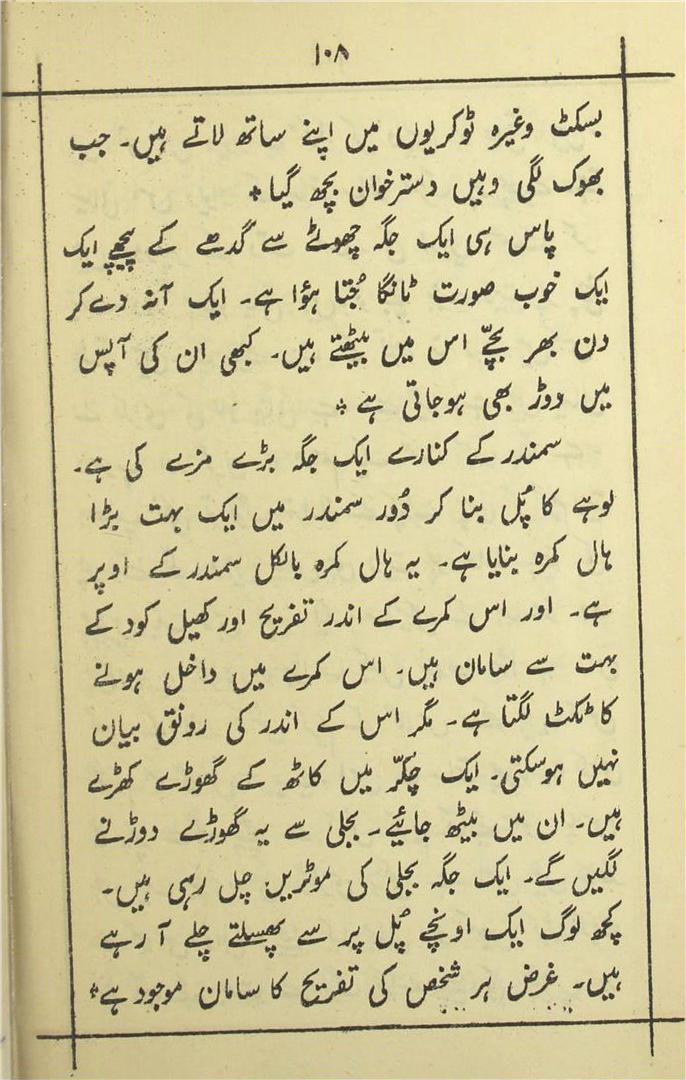 ۱۰۸
بسکٹ وغیرہ ٹوکریوں میں اپنے ساتھ لاتے ہیں۔ جب
بھوک لگی وہیں دسترخوان بچھ گیا *
پاس ہی ایک جگہ چھوٹے سے گدھے کے پیچھے ایک
ایک خوب صورت ٹانگا جُتا ہؤا ہے۔ ایک آنہ دے کر
دن بھر بچّے اس میں بیٹھتے ہیں۔ کبھی ان کی آپس
میں دوڑ بھی ہوجاتی ہے *
سمندر کے کنارے ایک جگہ بڑے مزے کی ہے۔
لوہے کا پُل بنا کر دُور سمندر میں ایک بہت بڑا
ہال کمرہ بنایا ہے۔ یہ ہال کمرہ بالکل سمندر کے اوپر
ہے۔ اور اس کمرے کے اندر تفریح اور کھیل کود کے
بہت سے سامان ہیں۔ اس کمرے میں داخل ہونے
کا ٹکٹ لگتا ہے۔ مگر اس کے اندر کی رونق بیان
نہیں ہوسکتی۔ ایک چکّر میں کاٹھ کے گھوڑے کھڑے
ہیں۔ ان میں بیٹھ جائیے۔ بجلی سے یہ گھوڑے دوڑنے
لگیں گے۔ ایک جگہ بجلی کی موٹریں چل رہی ہیں۔
کچھ لوگ ایک اونچے پُل پر سے پھسلتے چلے آ رہے
ہیں۔ غرض ہر شخص کی تفریح کا سامان موجود ہے *